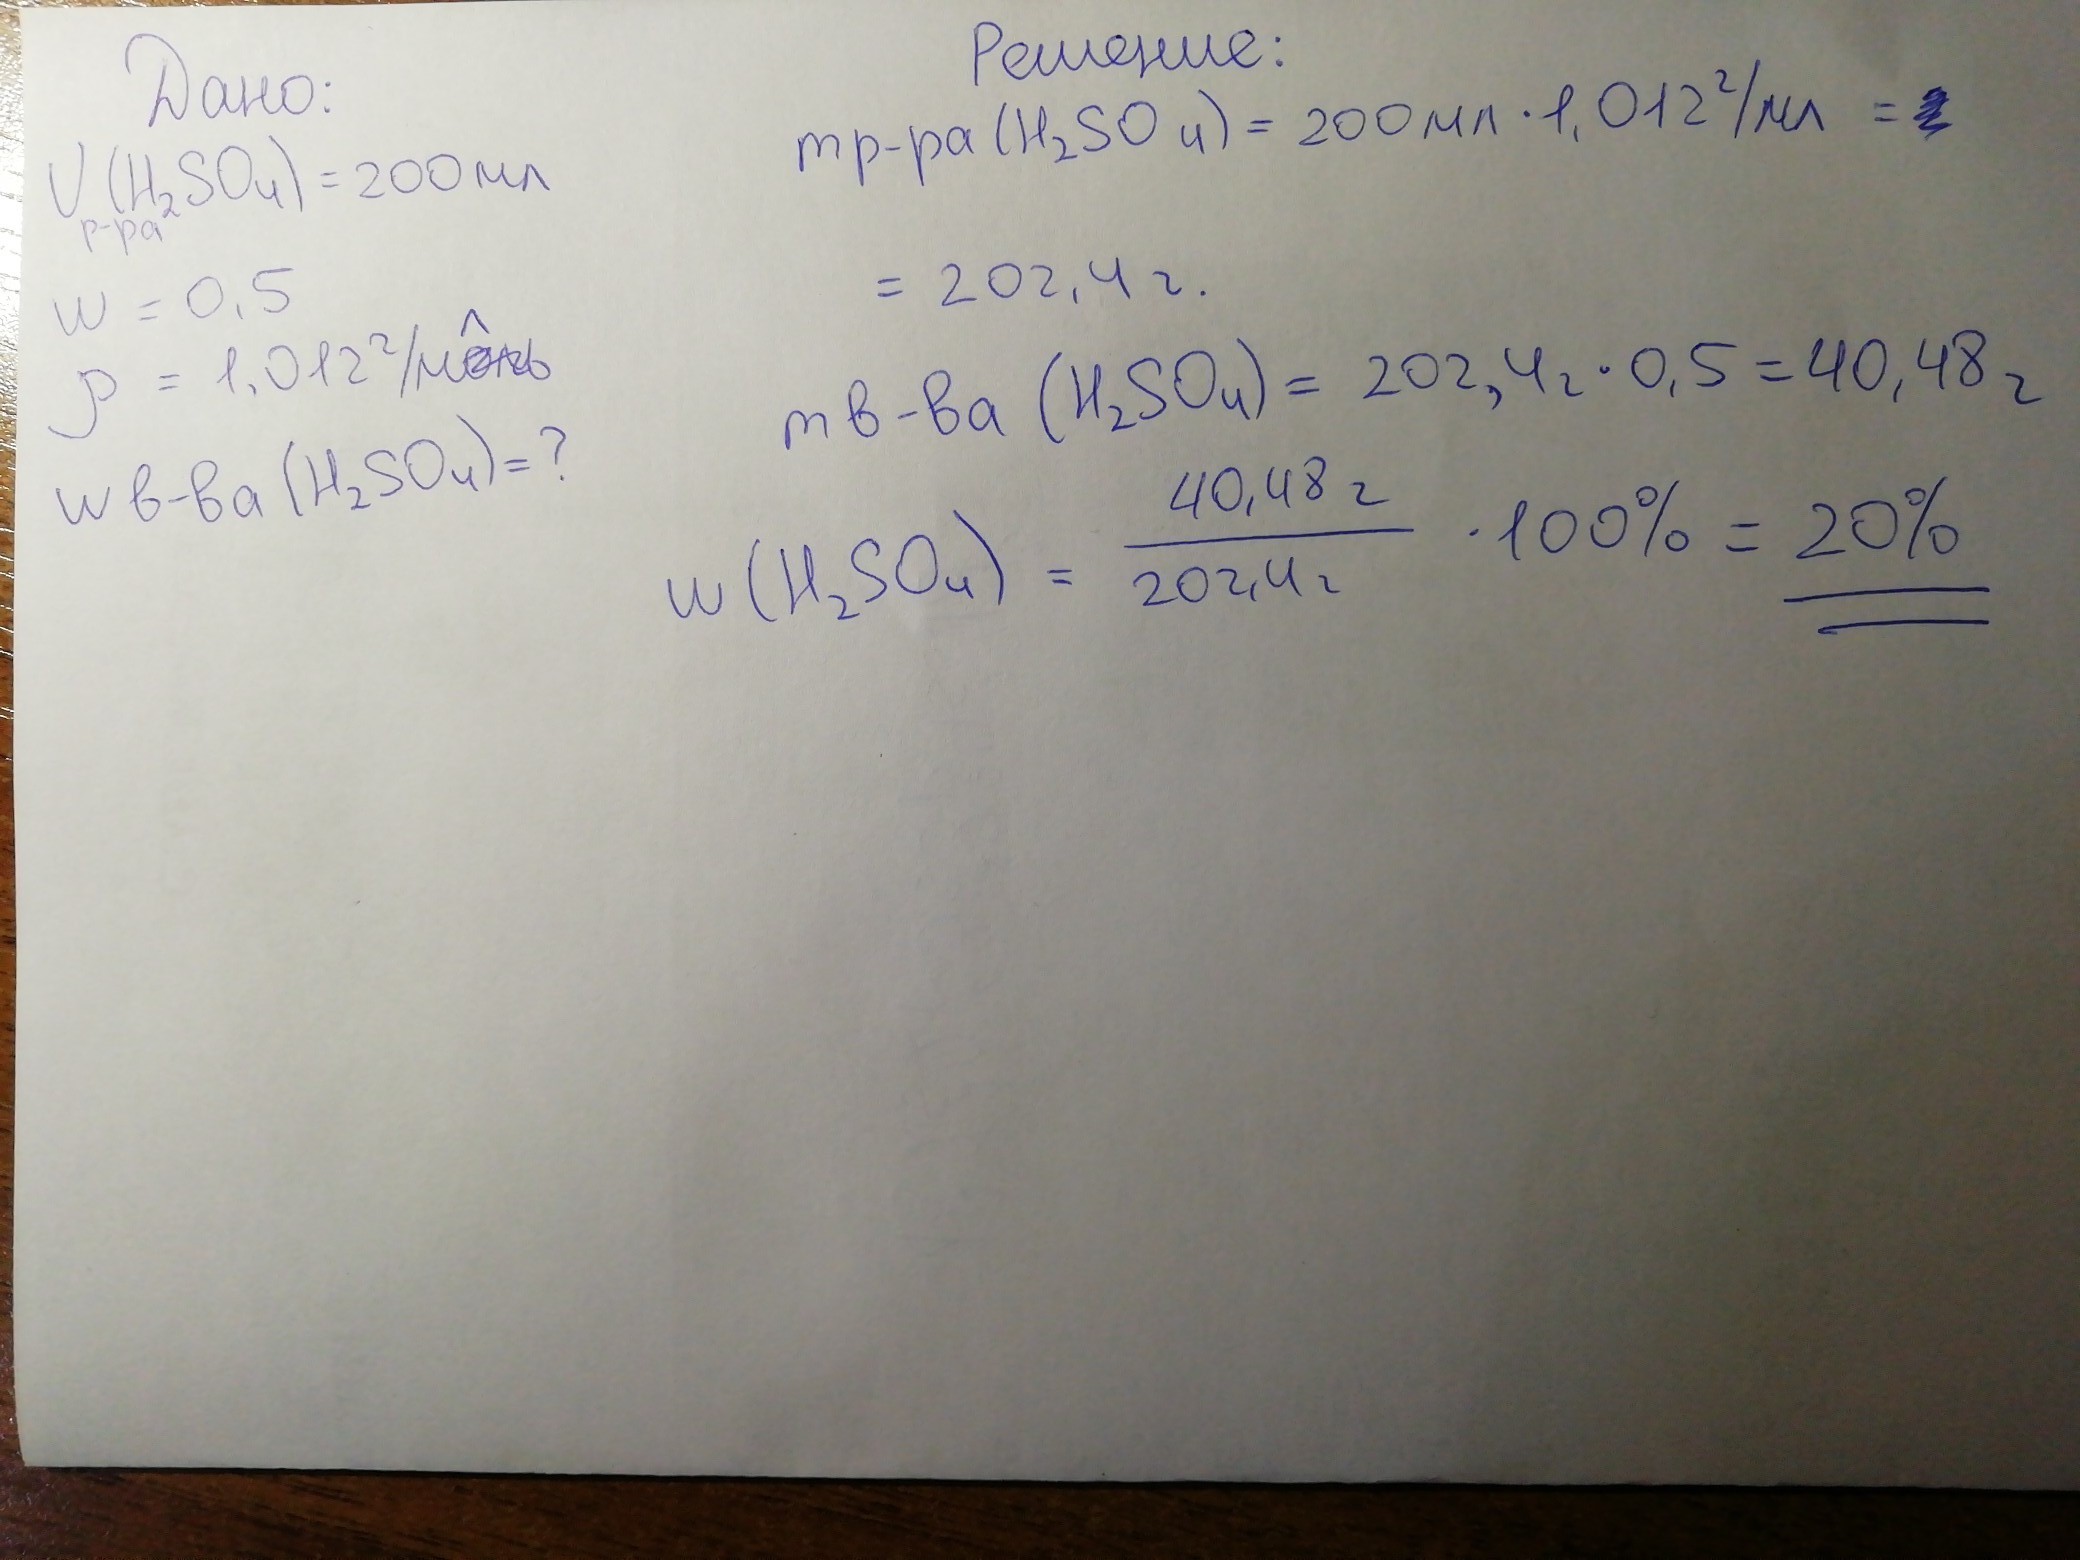 Дано:
V р-ра (H₂SO₄) = 200 мл
w = 0,5
ρ = 1,012 г/мл
w в-ва (H₂SO₄) = ?
Решение:
m р-ра (H₂SO₄) = 200 мл · 1,012 г/мл =
= 202,4 г.
m в-ва (H₂SO₄) = 202,4 г · 0,5 = 40,48 г
w (H₂SO₄) = 40,48 г / 202,4 г · 100% = 20%